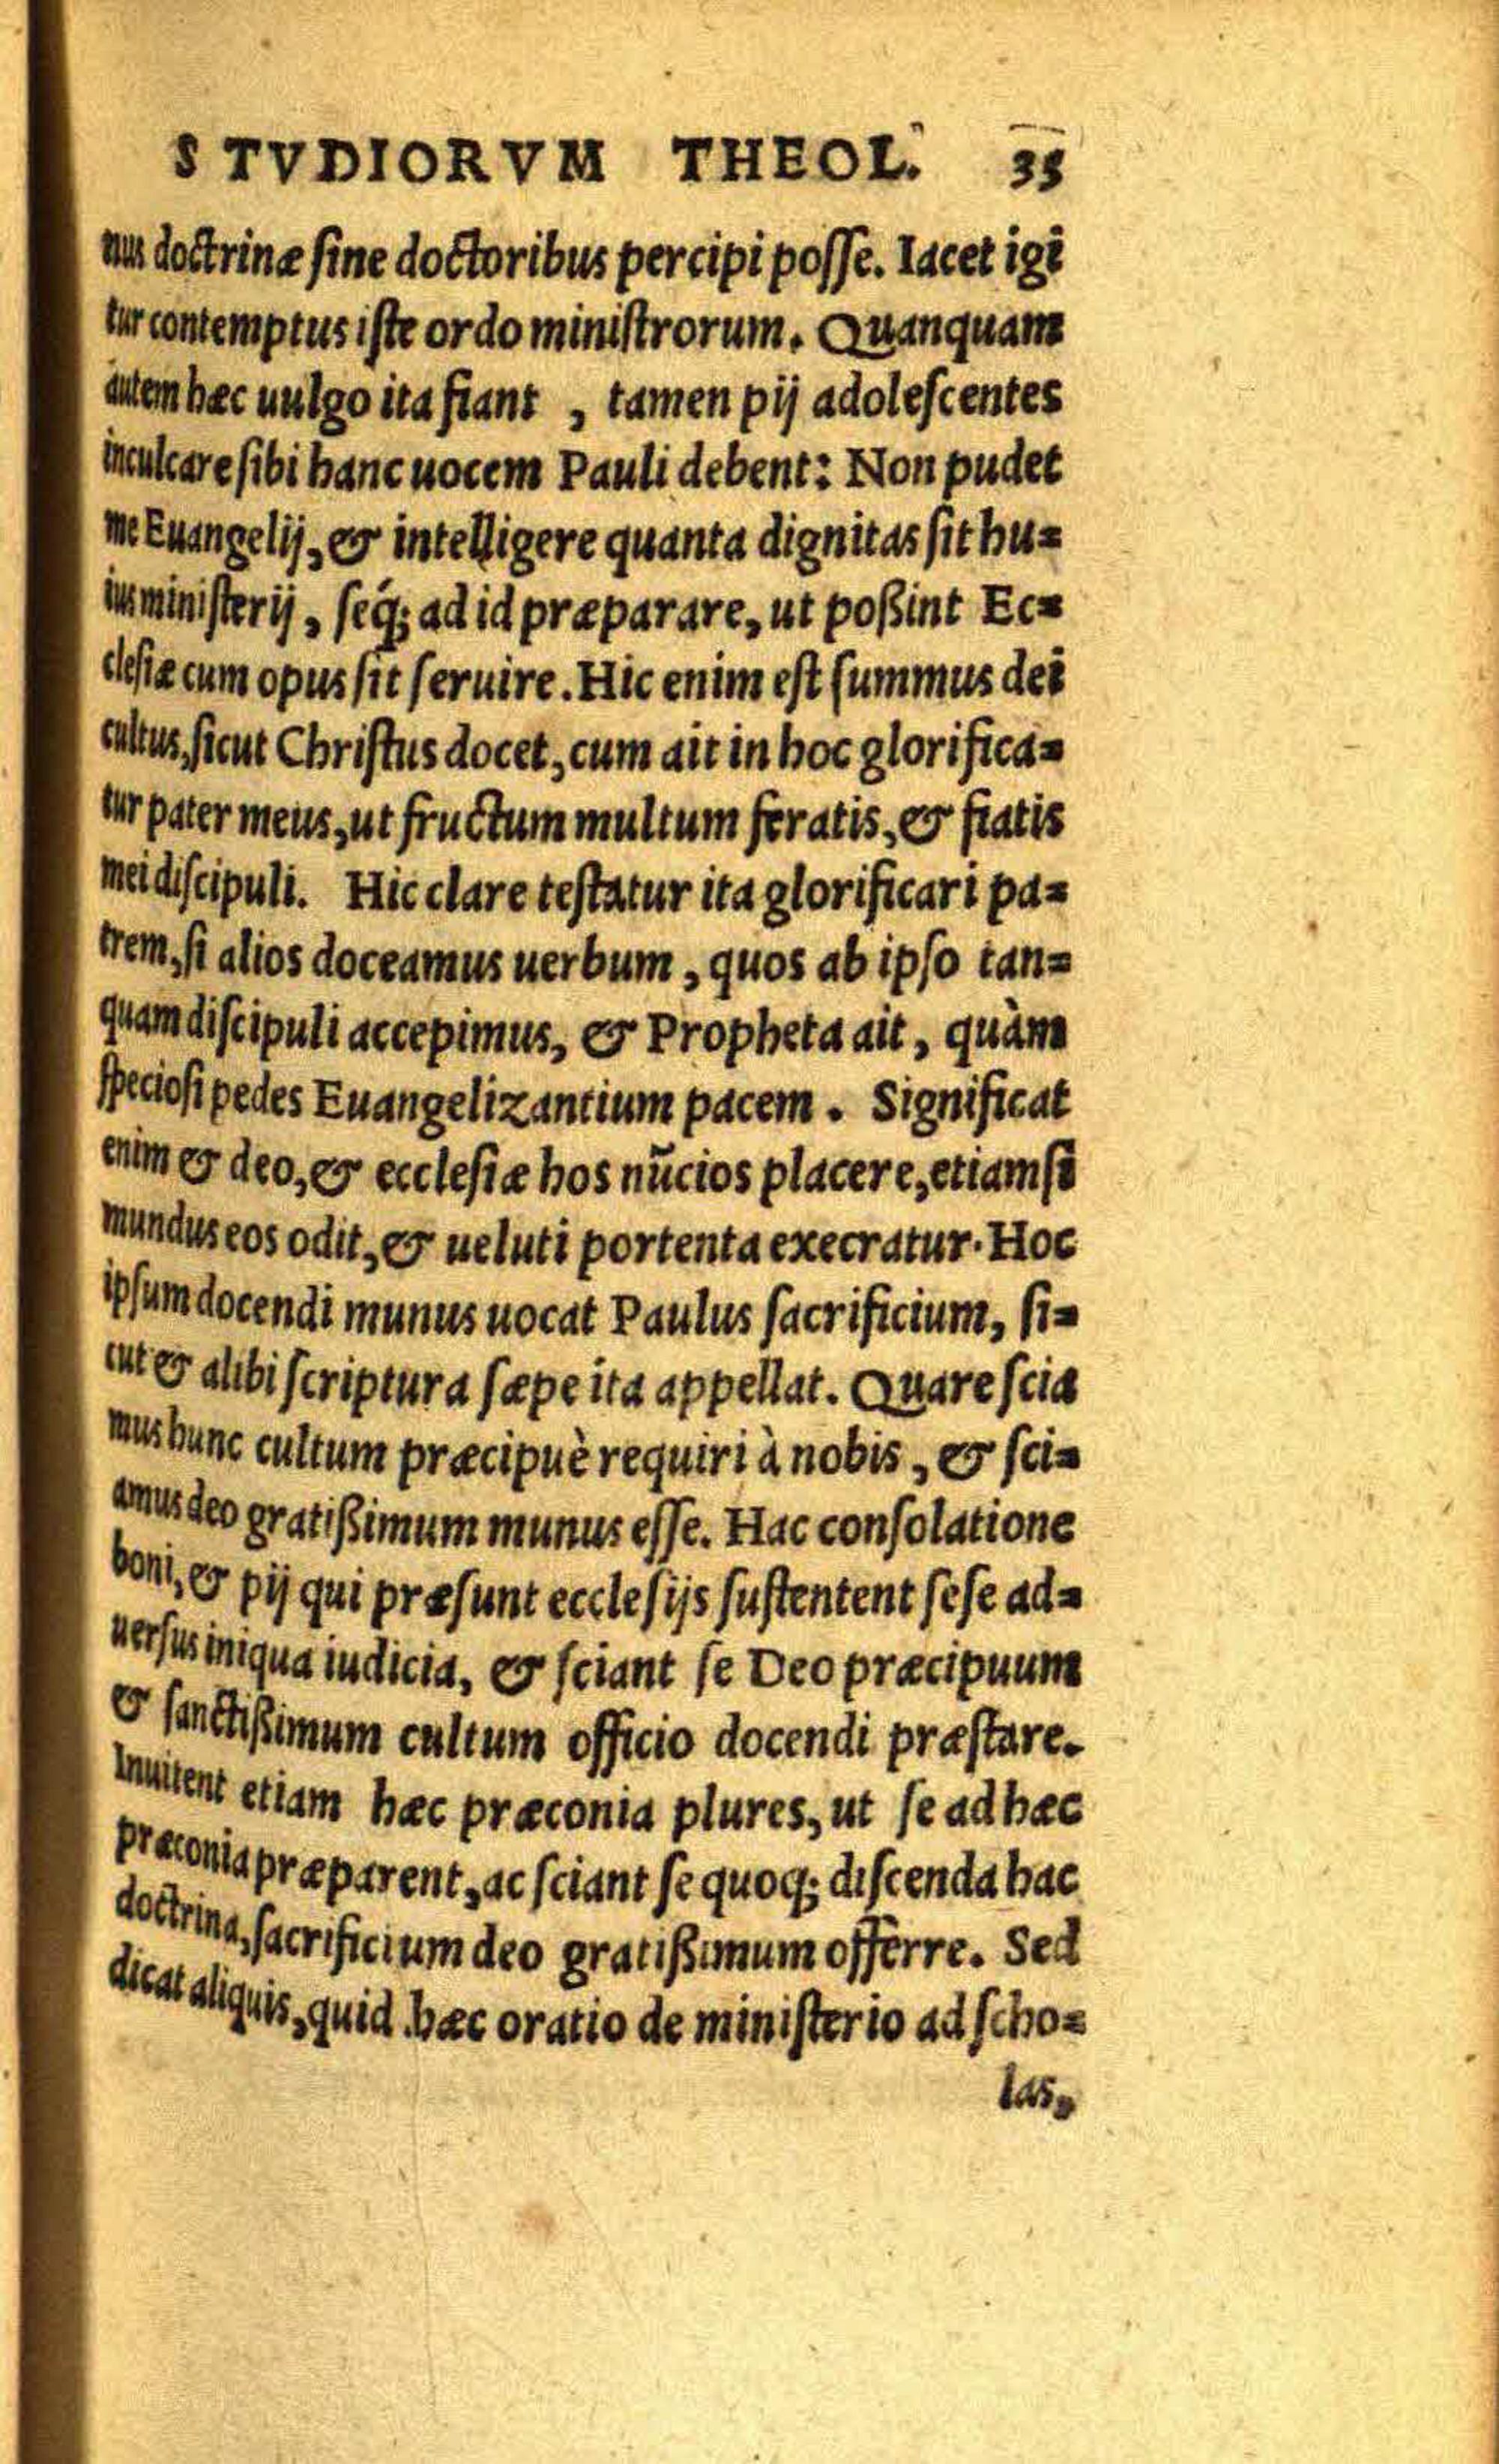 STVDIORVM THEOL. 35
nus doctrinæ ſine doctoribus percipi poſſe. Iacet igi
tur contemptus iſte ordo miniſtrorum. Quanquam
autem hæc uulgo ita fiant , tamen pij adoleſcentes
inculcare ſibi hanc uocem Pauli debent: Non pudet
me Euangelij, & intelligere quanta dignitas ſit hu=
ius miniſterij, ſeq́; ad id præparare, ut poßint Ec=
cleſiæ cum opus ſit ſeruire. Hic enim eſt ſummus dei
cultus, ſicut Chriſtus docet, cum ait in hoc glorifica=
tur pater meus, ut fructum multum feratis, & fiatis
mei diſcipuli. Hic clare teſtatur ita glorificari pa=
trem, ſi alios doceamus uerbum, quos ab ipſo tan=
quam diſcipuli accepimus, & Propheta ait, quàm
ſpecioſi pedes Euangelizantium pacem. Significat
enim & deo, & eccleſiæ hos nũcios placere, etiamſi
mundus eos odit, & ueluti portenta execratur. Hoc
ipſum docendi munus uocat Paulus ſacrificium, ſi=
cut & alibi ſcriptura ſæpe ita appellat. Quare ſcia
mus hunc cultum præcipuè requiri à nobis, & ſci=
amus deo gratißimum munus eſſe. Hac conſolatione
boni, & pij qui præſunt eccleſijs ſuſtentent ſeſe ad=
uerſus iniqua iudicia, & ſciant ſe Deo præcipuum
& ſanctißimum cultum officio docendi præſtare.
Inuitent etiam hæc præconia plures, ut ſe ad hæc
præconia præparent, ac ſciant ſe quoq; diſcenda hac
doctrina, ſacrificium deo gratißimum offerre. Sed
dicat aliquis, quid hæc oratio de miniſterio ad ſcho=
las,